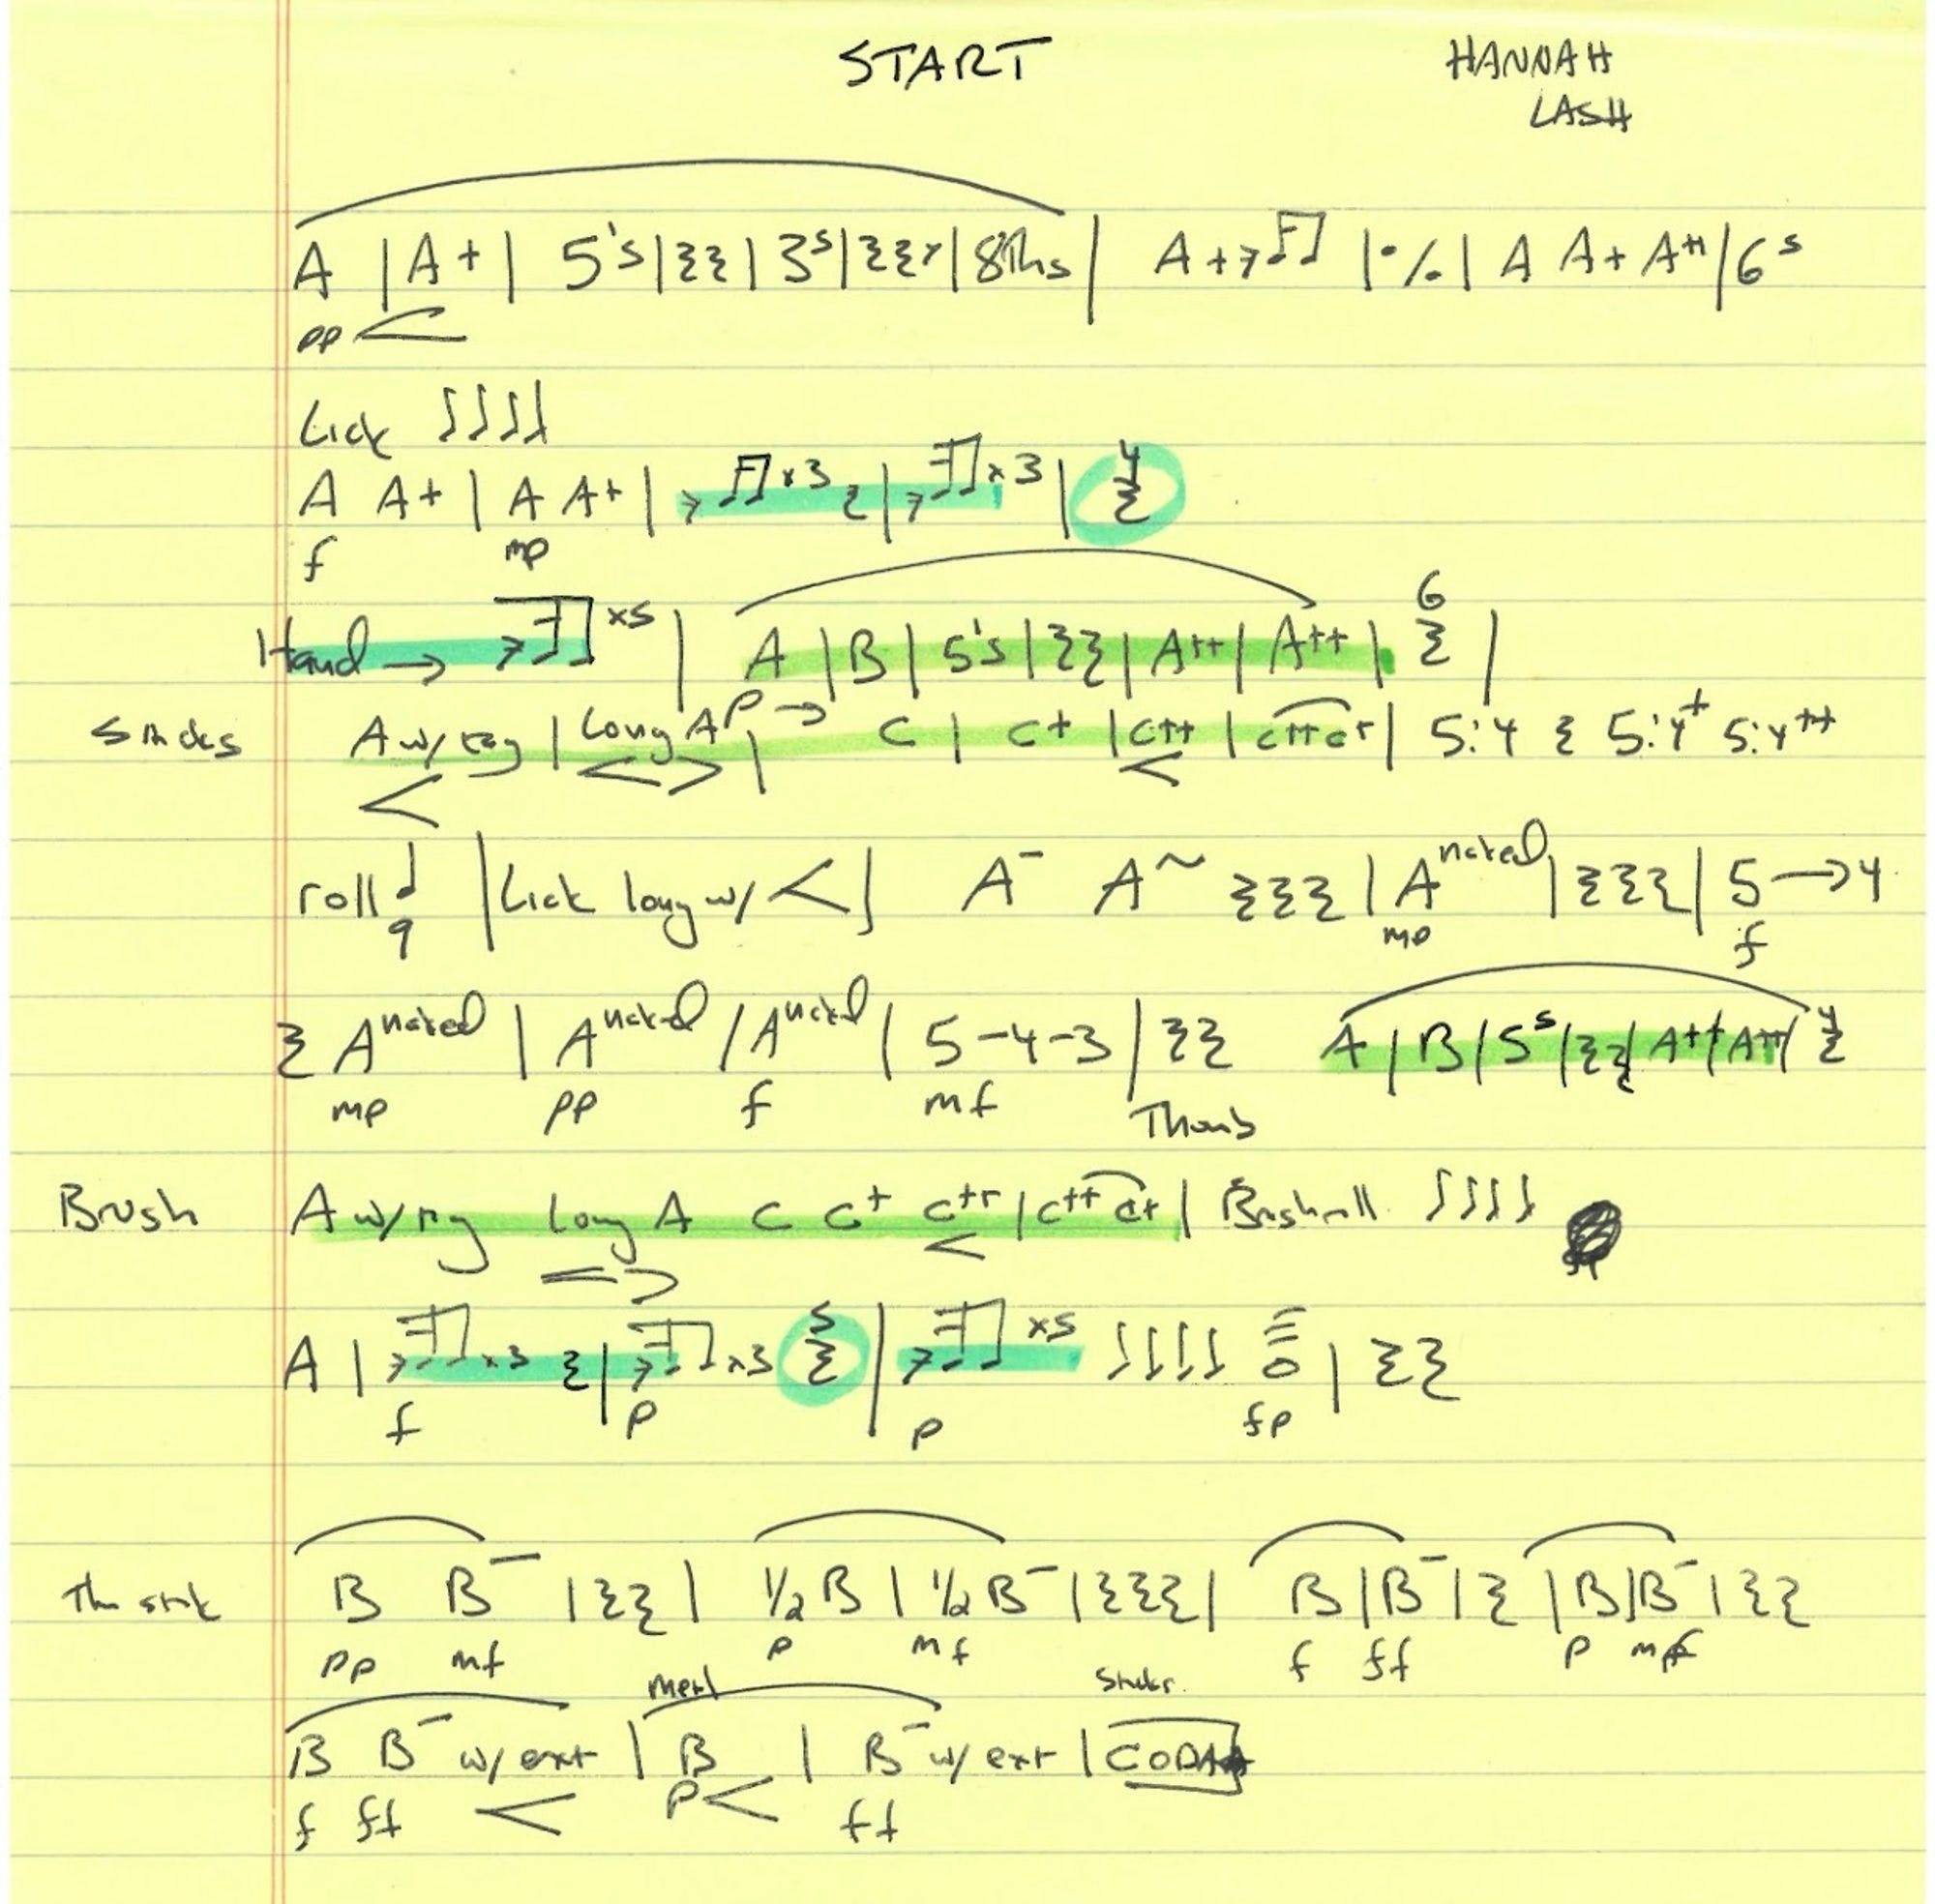 START
HANNAH
LASH
A | A+ | 5's | 𝄽𝄽 | 3s | 𝄽𝄽𝄾 | 8ths | A+ 𝄾♫ | 𝄎 | A A+ A++ | 6s
pp <
Lick ♩♩♩♩
A A+ | A A+ | 𝄾♫ x3 𝄽 | 𝄾♫ x3 | 4 𝄽
f mp
Hand → 𝄾♫ x5 | A | B | 5's | 𝄽𝄽 | A++ | A++ | 6 𝄽 |
Sticks A w/ | Long A | p → C | C+ | C++ | C++ C+ | 5:4 𝄽 5:4+ 5:4++
< < > <
roll ♩ | Lick long w/ < | A- A~ 𝄽𝄽𝄽 | A naked | 𝄽𝄽𝄽 | 5 → 4
9 mp f
𝄽 A naked | A naked | A naked | 5-4-3 | 𝄽𝄽 A | B | 5s | 𝄽𝄽 | A++ | A++ | 4 𝄽
mp pp f mf
Brush A w/ long A C C+ C++ | C++ C+ | ♩♩♩♩
> <
A | 𝄾♫ x3 𝄽 | 𝄾♫ x3 5 𝄽 | 𝄾♫ x5 ♩♩♩♩ | 𝄽𝄽
f p p fp
B B- | 𝄽𝄽 | 1/2 B | 1/2 B- | 𝄽𝄽𝄽 | B | B- | 𝄽 | B | B- | 𝄽𝄽
pp mf p mf f ff p
B B- w/ ext | B | B- w/ ext | CODA
f ff < p < ff